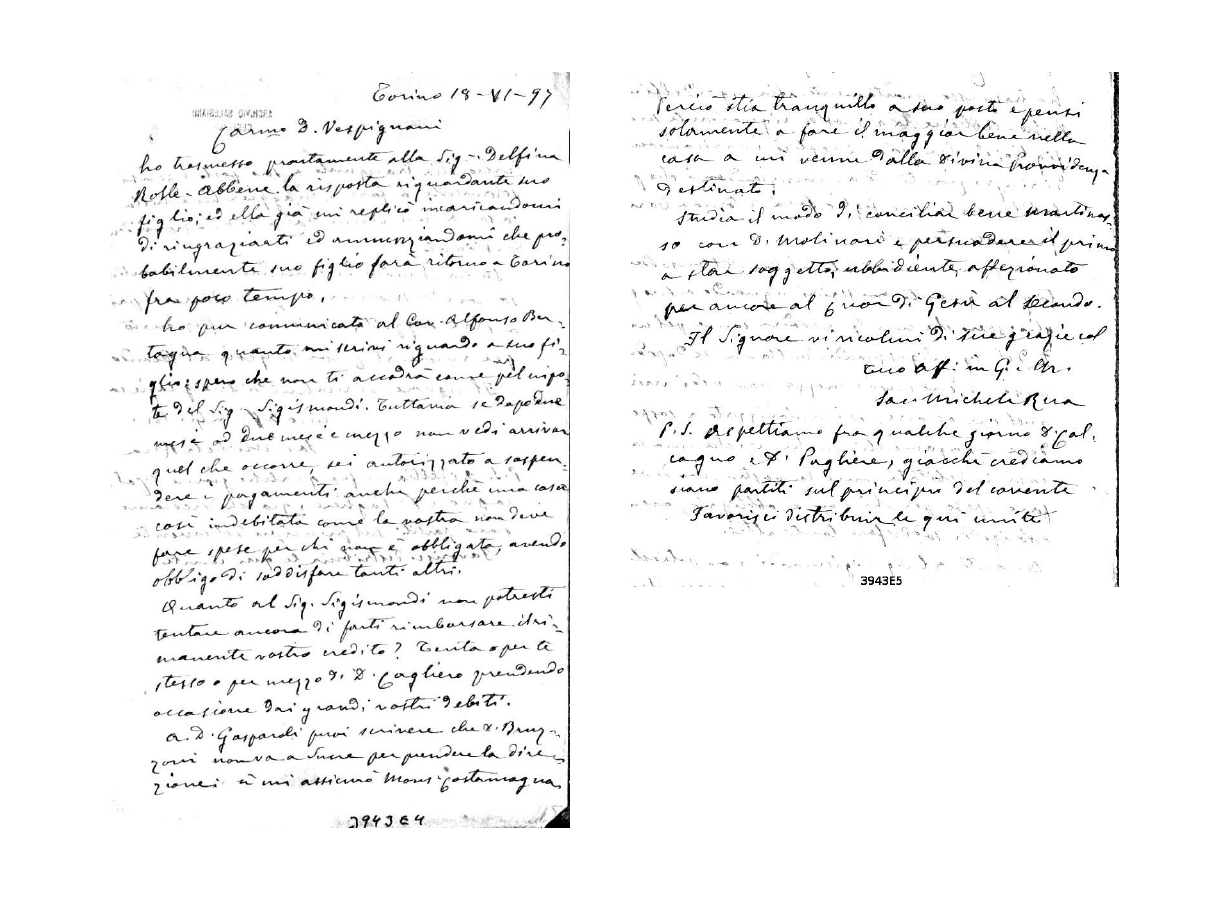 Torino 18-VI-97
ARCHIVIO SALESIANO
Carmo D. Vespignani
ho trasmesso prontamente alla Sig.ª Delfina
Abbene la risposta riguardante suo
figlio; ed ella già mi replicò incaricandomi
di ringraziarti ed annunziandomi che pro-
babilmente suo figlio farà ritorno a Torino
fra poco tempo.
ho pur comunicato al Cav. Alfonso Ber-
tagna quanto mi scrivi riguardo a suo fi-
glio; spero che non ti accadrà come pel nipo-
te del Sig. Sigismondi. Tuttavia se dopo due
mesi od due mesi e mezzo non vedi arrivar
quel che occorre, sei autorizzato a sospen-
dere i pagamenti anche perchè una casa
così indebitata come la vostra non deve
fare spese per chi non è obbligata, avendo
obbligo di soddisfare tanti altri.
Quanto al Sig. Sigismondi non potresti
tentare ancora di farti rimborsare il ri-
manente vostro credito? Tenta o per te
stesso o per mezzo di D. Cagliero prendendo
occasione dai grandi vostri debiti.
A D. Gasparoli puoi scrivere che D. Bruz-
zoni non va a Sucre per prendere la dire-
zione: sì mi assicurò Mons. Costamagna
3943E4
Perciò stia tranquillo a suo posto e pensi
solamente a fare il maggior bene nella
casa a cui venne dalla divina Provvidenza
destinato.
Studia il modo di conciliar bene
so con D. Molinari e persuadere il primo
a star soggetto, ubbidiente, affezionato
per amore al Cuor di Gesù al secondo.
Il Signore vi ricolmi di sue grazie col
tuo Aff. in G. e M.
Sac. Michele Rua
P.S. Aspettiamo fra qualche giorno D. Cal-
cagno e D. Pagliere, giacchè crediamo
siano partiti sul principio del corrente
Favorisci distribuir le qui unite
3943E5